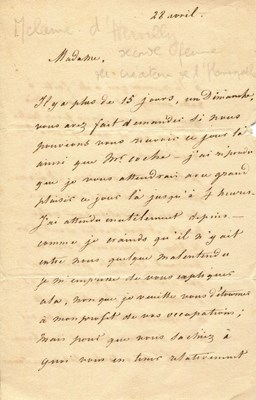 28 avril.
Madame d'Hervilly
Madame,
Il y a plus de 15 jours, un Dimanche,
vous avez fait demander si nous
pouvions vous recevoir ce jour là
ainsi que Mr. Coche — j'ai répondu
que je vous attendrais avec grand
plaisir ce jour là jusqu'à 4 heures.
J'ai attendu inutilement depuis —
comme je crains qu'il n'y ait
entre nous quelque malentendu
je m'empresse de vous expliquer
cela, non que je veuille vous détourner
à mon profit de vos occupations ;
mais pour que vous sachiez à
quoi vous en tenir relativement